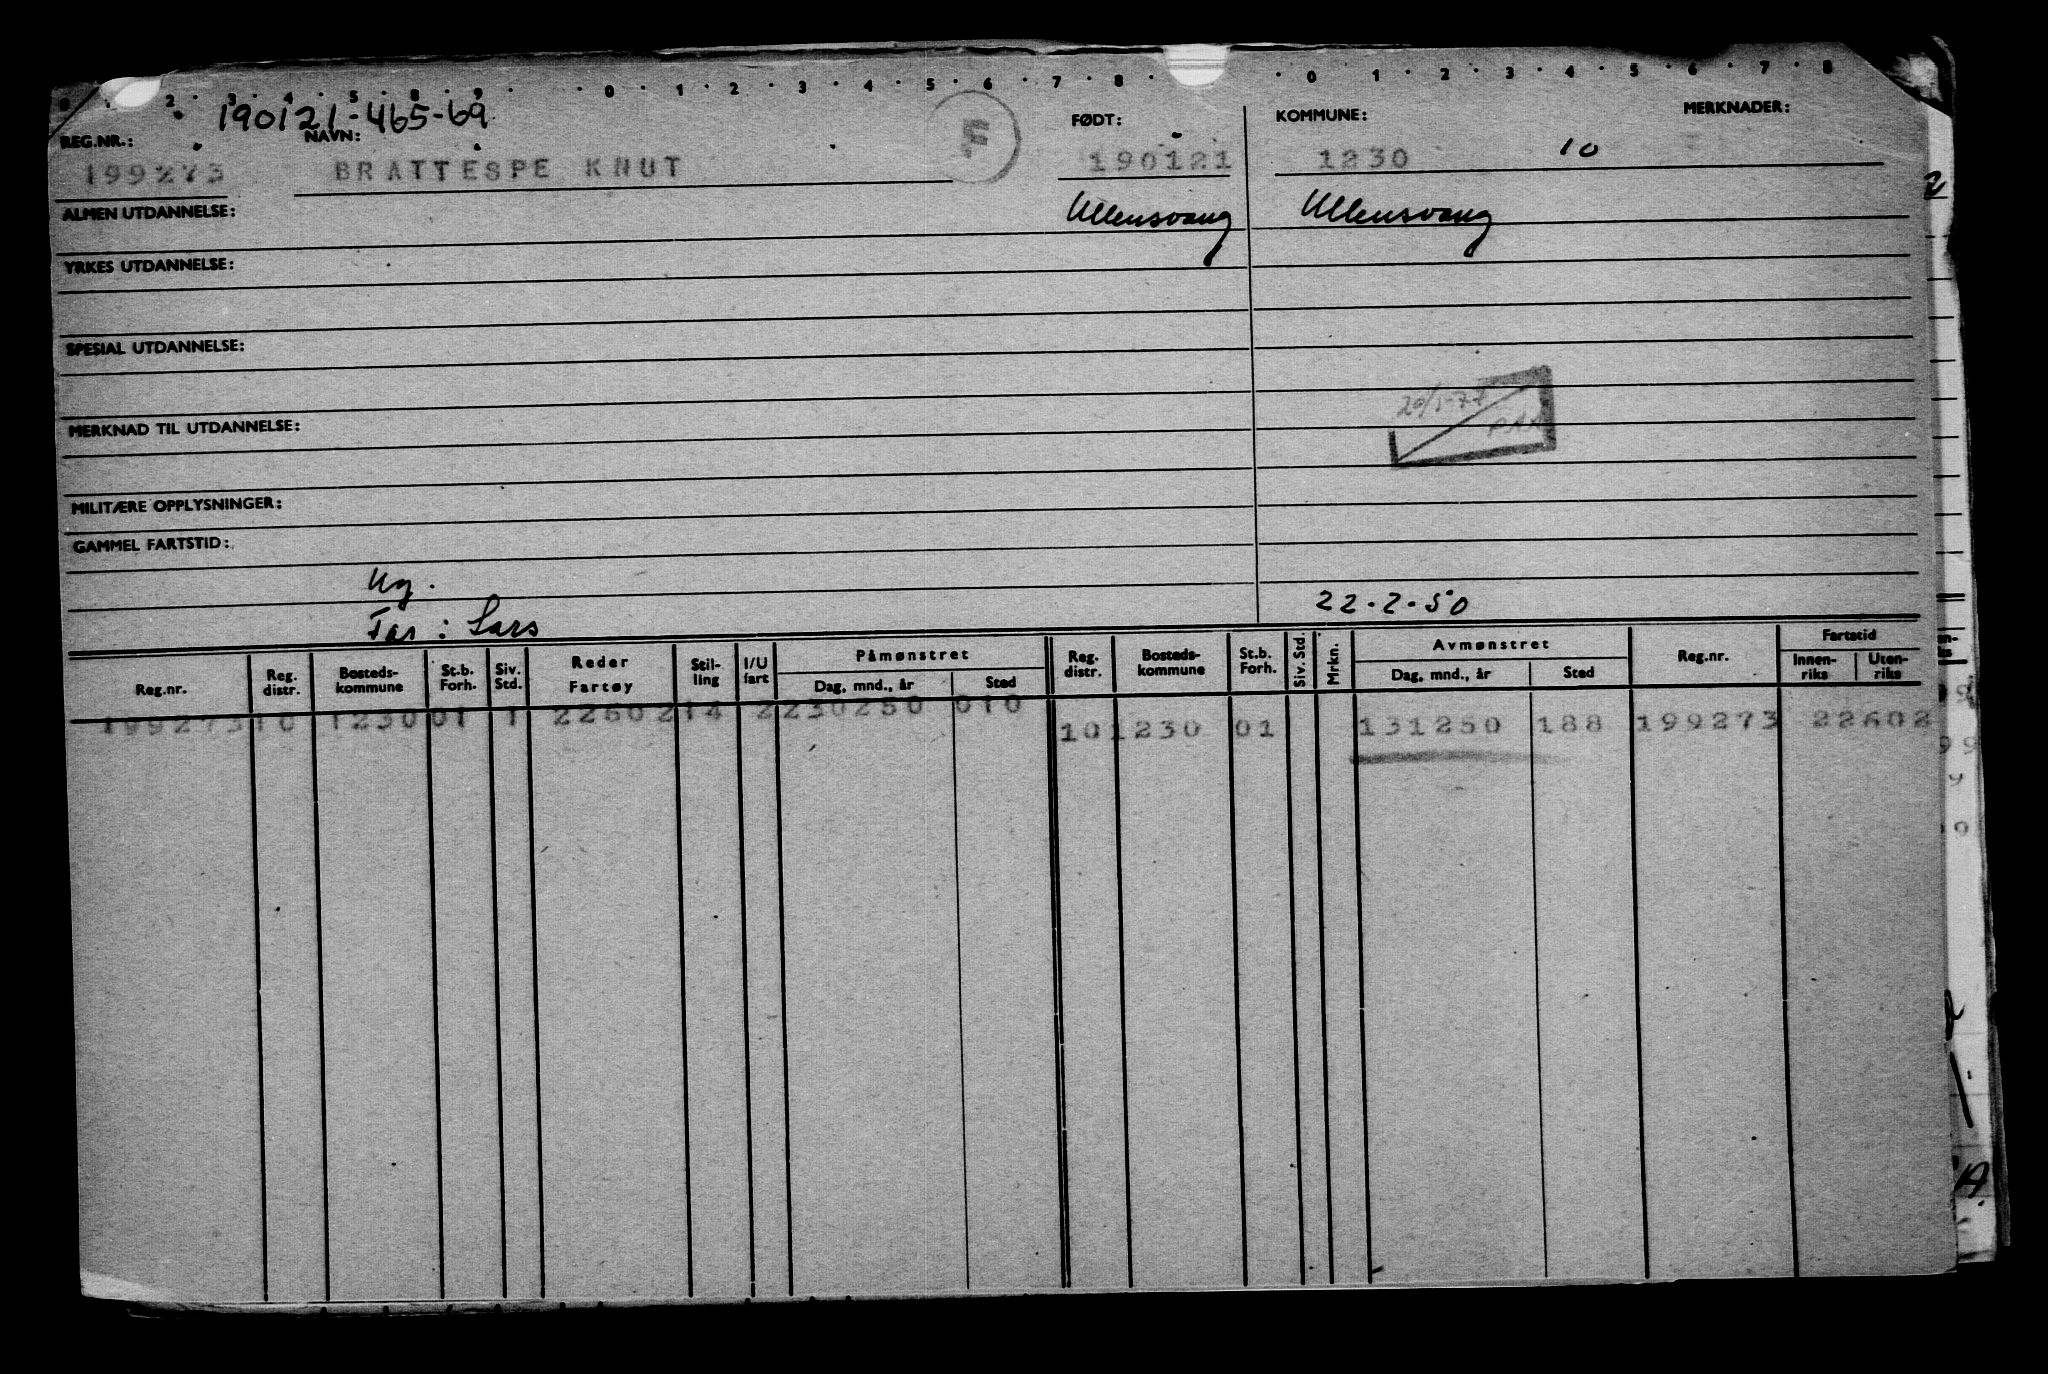 2 3 4 5 8 9 0 1 2 3 4 5 6 7 8 0 1 2 3 4 5 6 7 8
190121-465-69
REG.NR.: NAVN: FØDT: KOMMUNE: MERKNADER:
199273 BRATTESPE KNUT F 190121 1230 10
ALMEN UTDANNELSE: Ullensvang Ullensvang
YRKES UTDANNELSE:
SPESIAL UTDANNELSE:
20/1-77
MERKNAD TIL UTDANNELSE:
MILITÆRE OPPLYSNINGER:
GAMMEL FARTSTID:
Ug.
Far: Lars 22.2.50
Reg.nr. Reg. distr. Bosteds-kommune St.b. Forh. Siv. Std. Reder Fartøy Stil-ling I/U fart Påmønstret Dag, mnd., år Sted Reg. distr. Bosteds-kommune St.b. Forh. Siv. Std. Mrkn. Avmønstret Dag, mnd., år Sted Reg.nr. Fartstid Innen-riks Uten-riks
199273 10 1230 01 1 22602 14 2 230250 010 10 1230 01 131250 188 199273 22602